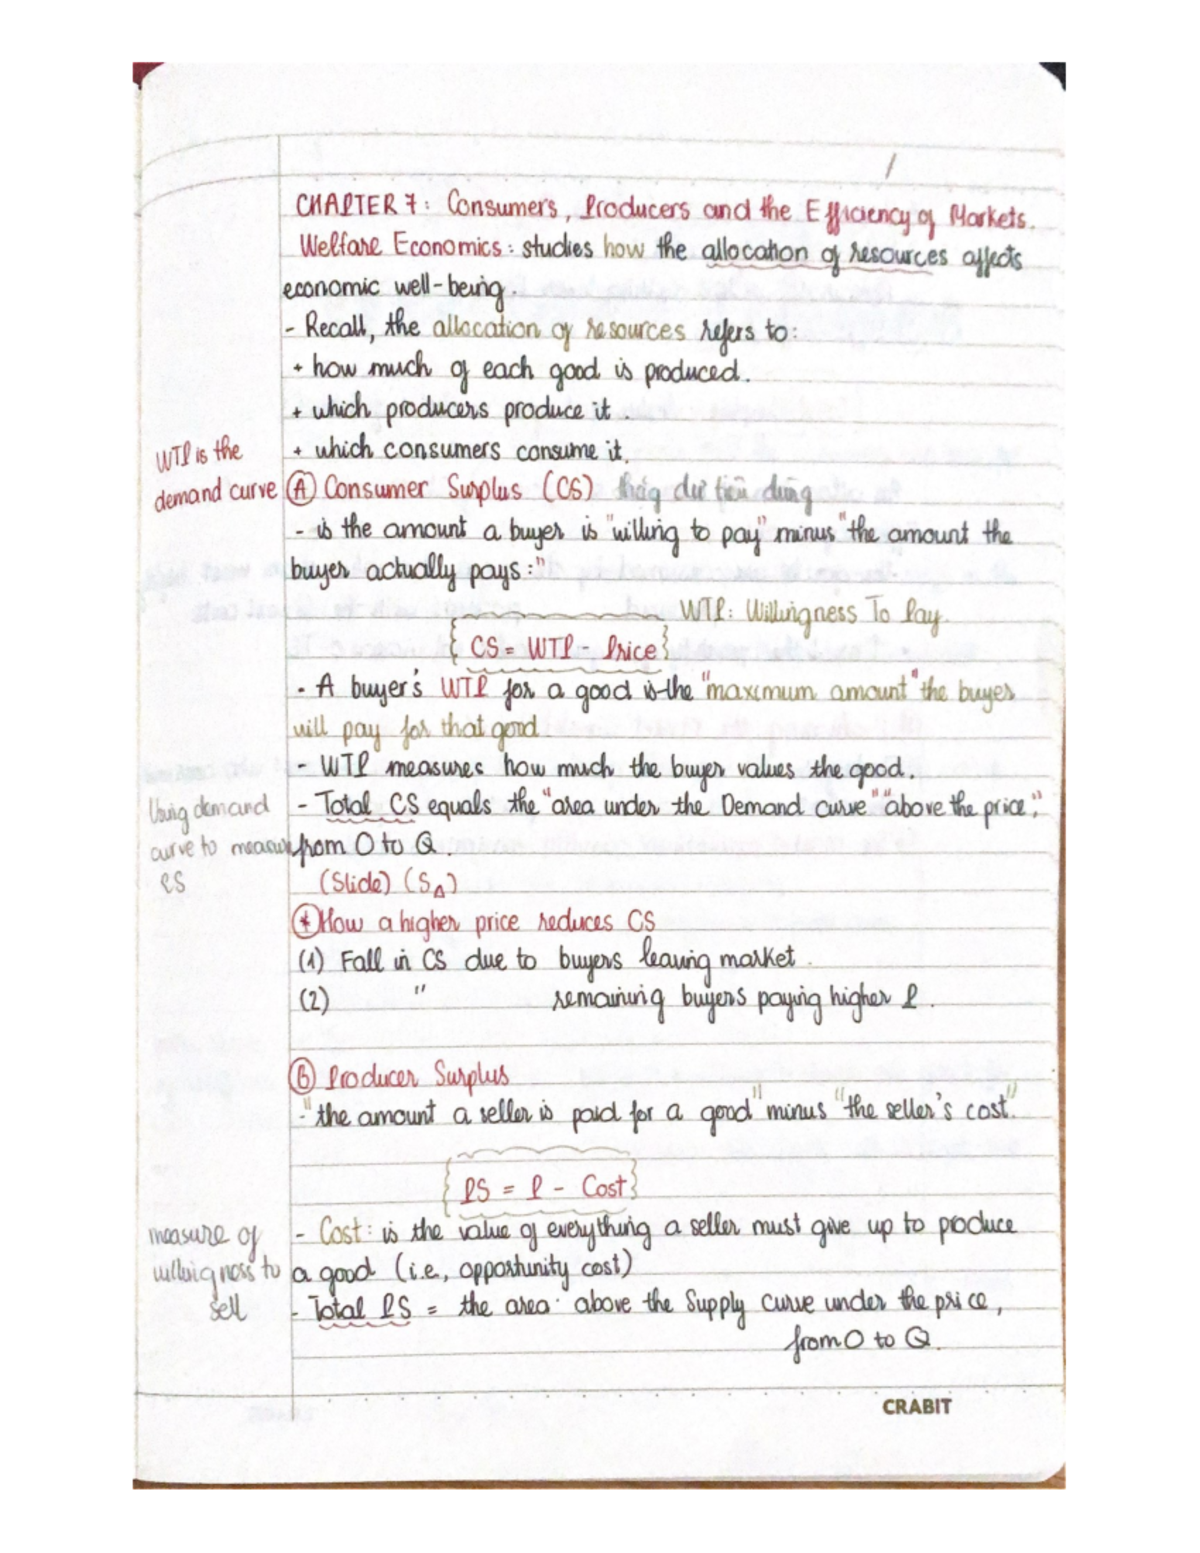 /
CHAPTER 7: Consumers, Producers and the Efficiency of Markets.
Welfare Economics: studies how the allocation of resources affects
economic well-being.
- Recall, the allocation of resources refers to:
+ how much of each good is produced.
+ which producers produce it.
+ which consumers consume it.
WTP is the
demand curve
Ⓐ Consumer Surplus (CS) thặng dư tiêu dùng
- is the amount a buyer is "willing to pay" minus "the amount the
buyer actually pays:"
WTP: Willingness To Pay.
CS = WTP - Price
- A buyer's WTP for a good is the "maximum amount" the buyer
will pay for that good
- WTP measures how much the buyer values the good.
Using demand
curve to measure
PS
- Total CS equals the "area under the Demand curve" "above the price,"
from O to Q.
(Slide) (S△)
(*) How a higher price reduces CS
(1) Fall in CS due to buyers leaving market.
(2) " remaining buyers paying higher P.
Ⓑ Producer Surplus
- "the amount a seller is paid for a good" minus "the seller's cost".
PS = P - Cost
measure of
willingness to
sell
- Cost: is the value of everything a seller must give up to produce
a good (i.e, opportunity cost)
- Total PS = the area above the Supply curve under the price,
from O to Q.
CRABIT